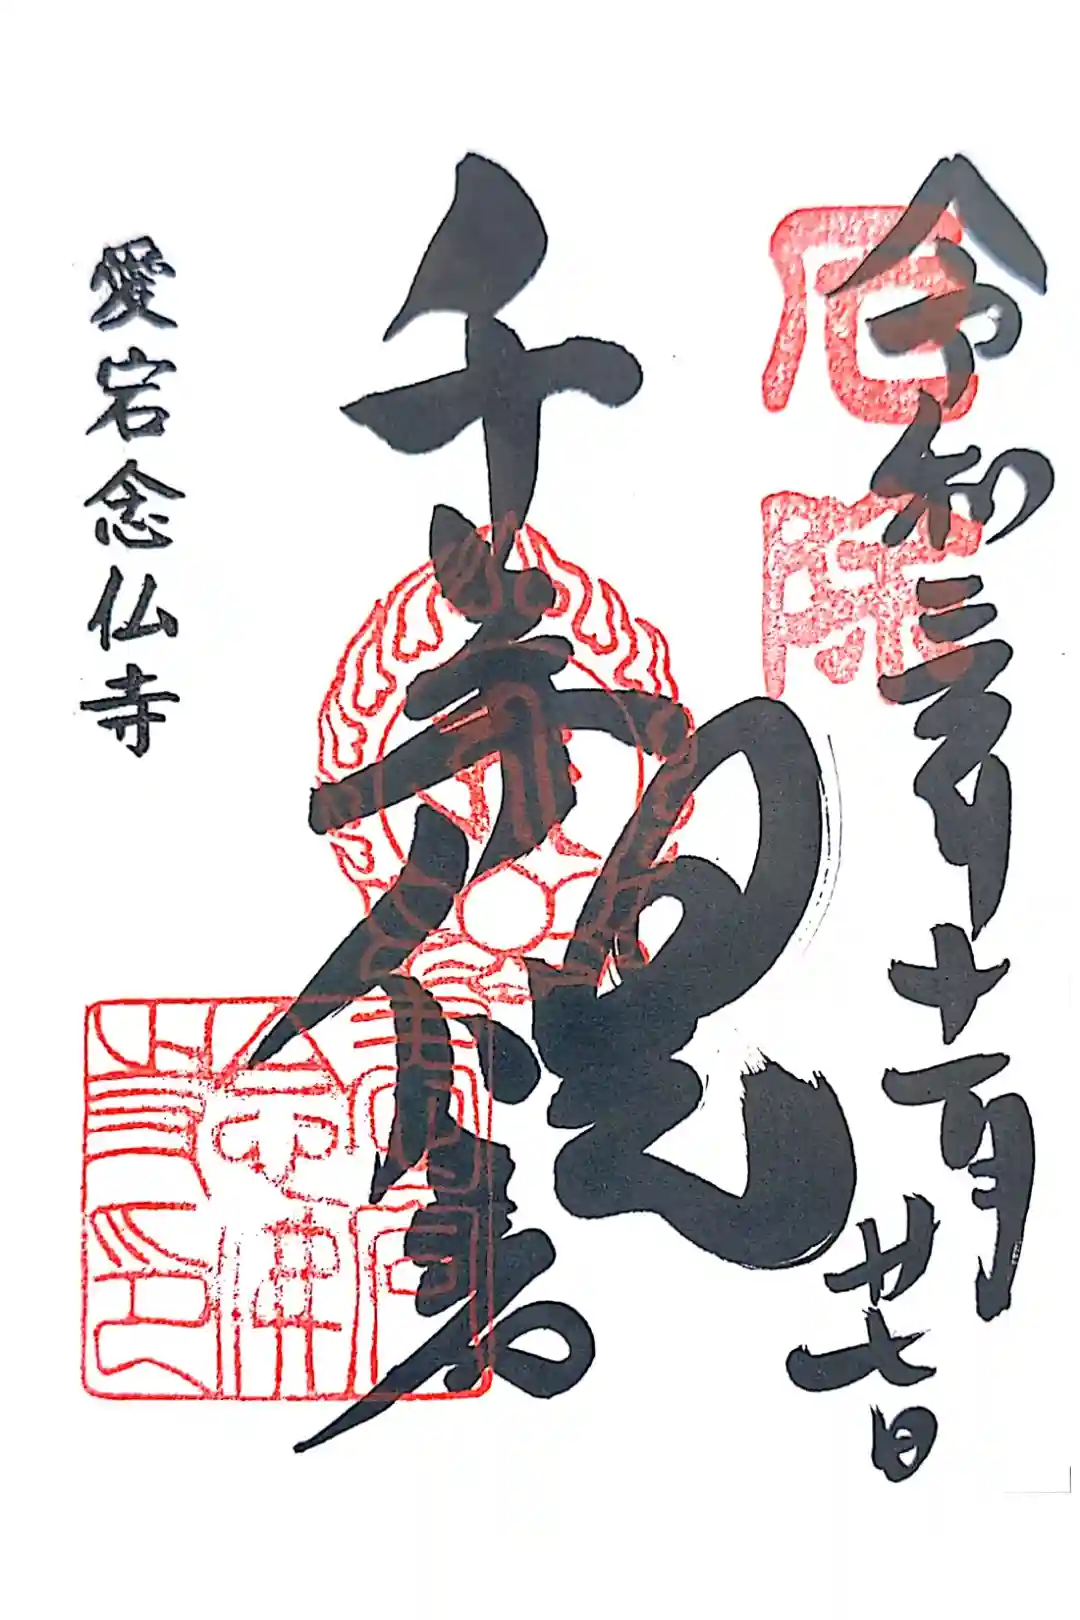 令和三年十一月廿七日
厄除
千手観音
愛宕念仏寺